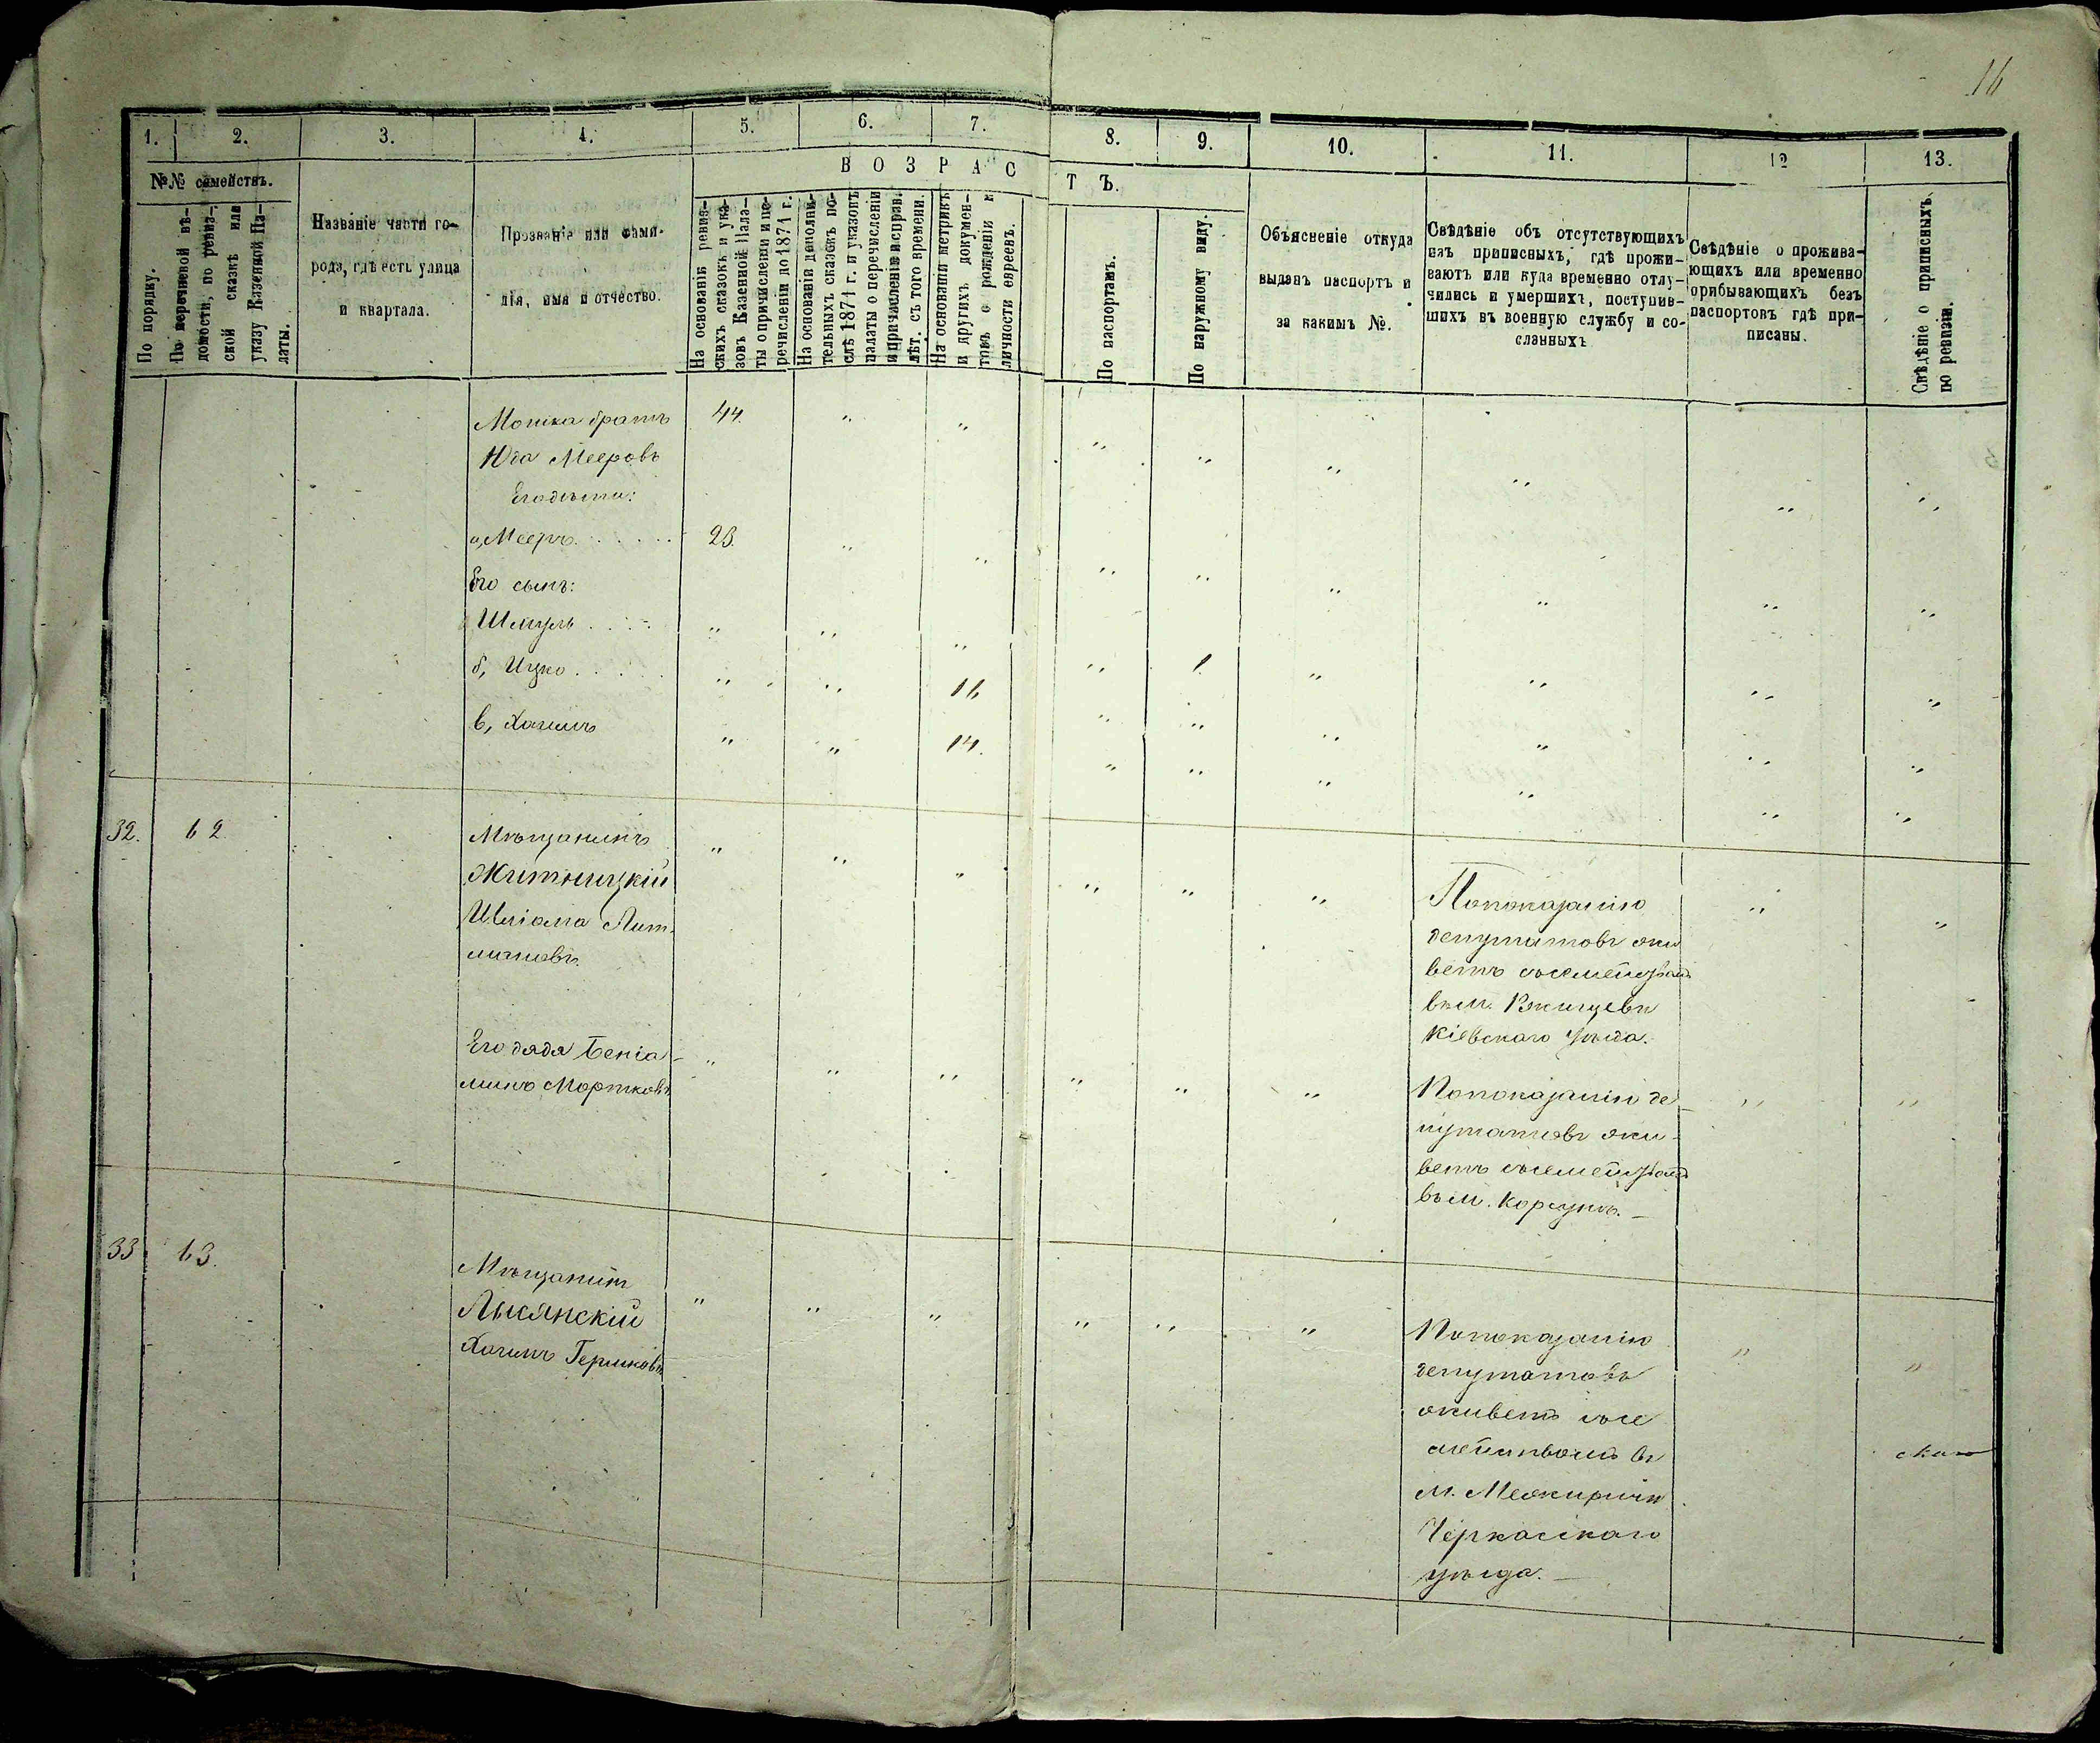 16
1. 2. 3. 4. 5. 6. 7. 8. 9. 10. 11. 12 13.
№№ семействъ.
ВОЗРАСТЪ.
По порядку.
По перечневой вѣ-
домости, по ревиз-
ской сказкѣ или
указу Казенной Па-
латы.
Названіе части го-
рода, гдѣ есть улица
и квартала.
Прозваніе или фами-
лія, имя и отчество.
На основаніи ревиз-
скихъ сказокъ и ука-
зовъ Казенной Пала-
ты о причисленіи и пе-
речисленіи до 1871 г.
На основаніи дополни-
тельныхъ сказокъ по-
слѣ 1871 г. и указовъ
палаты о перечисленіи
и причисленіи и справ.
лѣт. съ того времени.
На основаніи метрикъ
и другихъ докумен-
товъ о рожденіи и
личности евреевъ.
По паспортамъ.
По наружному виду.
Объясненіе откуда
выданъ паспортъ и
за какимъ №.
Свѣдѣніе объ отсутствующихъ
изъ приписныхъ, гдѣ прожи-
ваютъ или куда временно отлу-
чились и умершихъ, поступив-
шихъ въ военную службу и со-
сланныхъ
Свѣдѣніе о прожива-
ющихъ или временно
прибывающихъ безъ
паспортовъ гдѣ при-
писаны.
Свѣдѣніе о приписныхъ
по ревизіи.
Мошка братъ 44. " " " " " " " "
Юда Мееровъ
Его дѣти:
а, Мееръ 23. " " " " " " " "
Его сынъ:
Шмуль " " " " 1 " " " "
б, Ицко " " 16 " " " " " "
в, Хаимъ " " 14. " " " " " "
32. 62 Мѣщанинъ " " " " " " Попоказанію " "
Житницкій
Шліома Лит-
мановъ.
депутатовъ жи
ветъ съсемейством
въ м. Ржищевѣ
Кіевскаго уѣзда.
Его дядя Беніа- " " " " " " Попоказанію де- " "
минъ Мортковъ
путатовъ жи-
ветъ съсемейством
въ м. Корсунѣ. —
33 63. Мѣщанинъ
Лысянскій " " " " " " Попоказанію " "
Хаимъ Гершковъ
депутатовъ
живетъ съсе
мействомъ въ
м. Межиричи
Черкасскаго
уѣзда. —